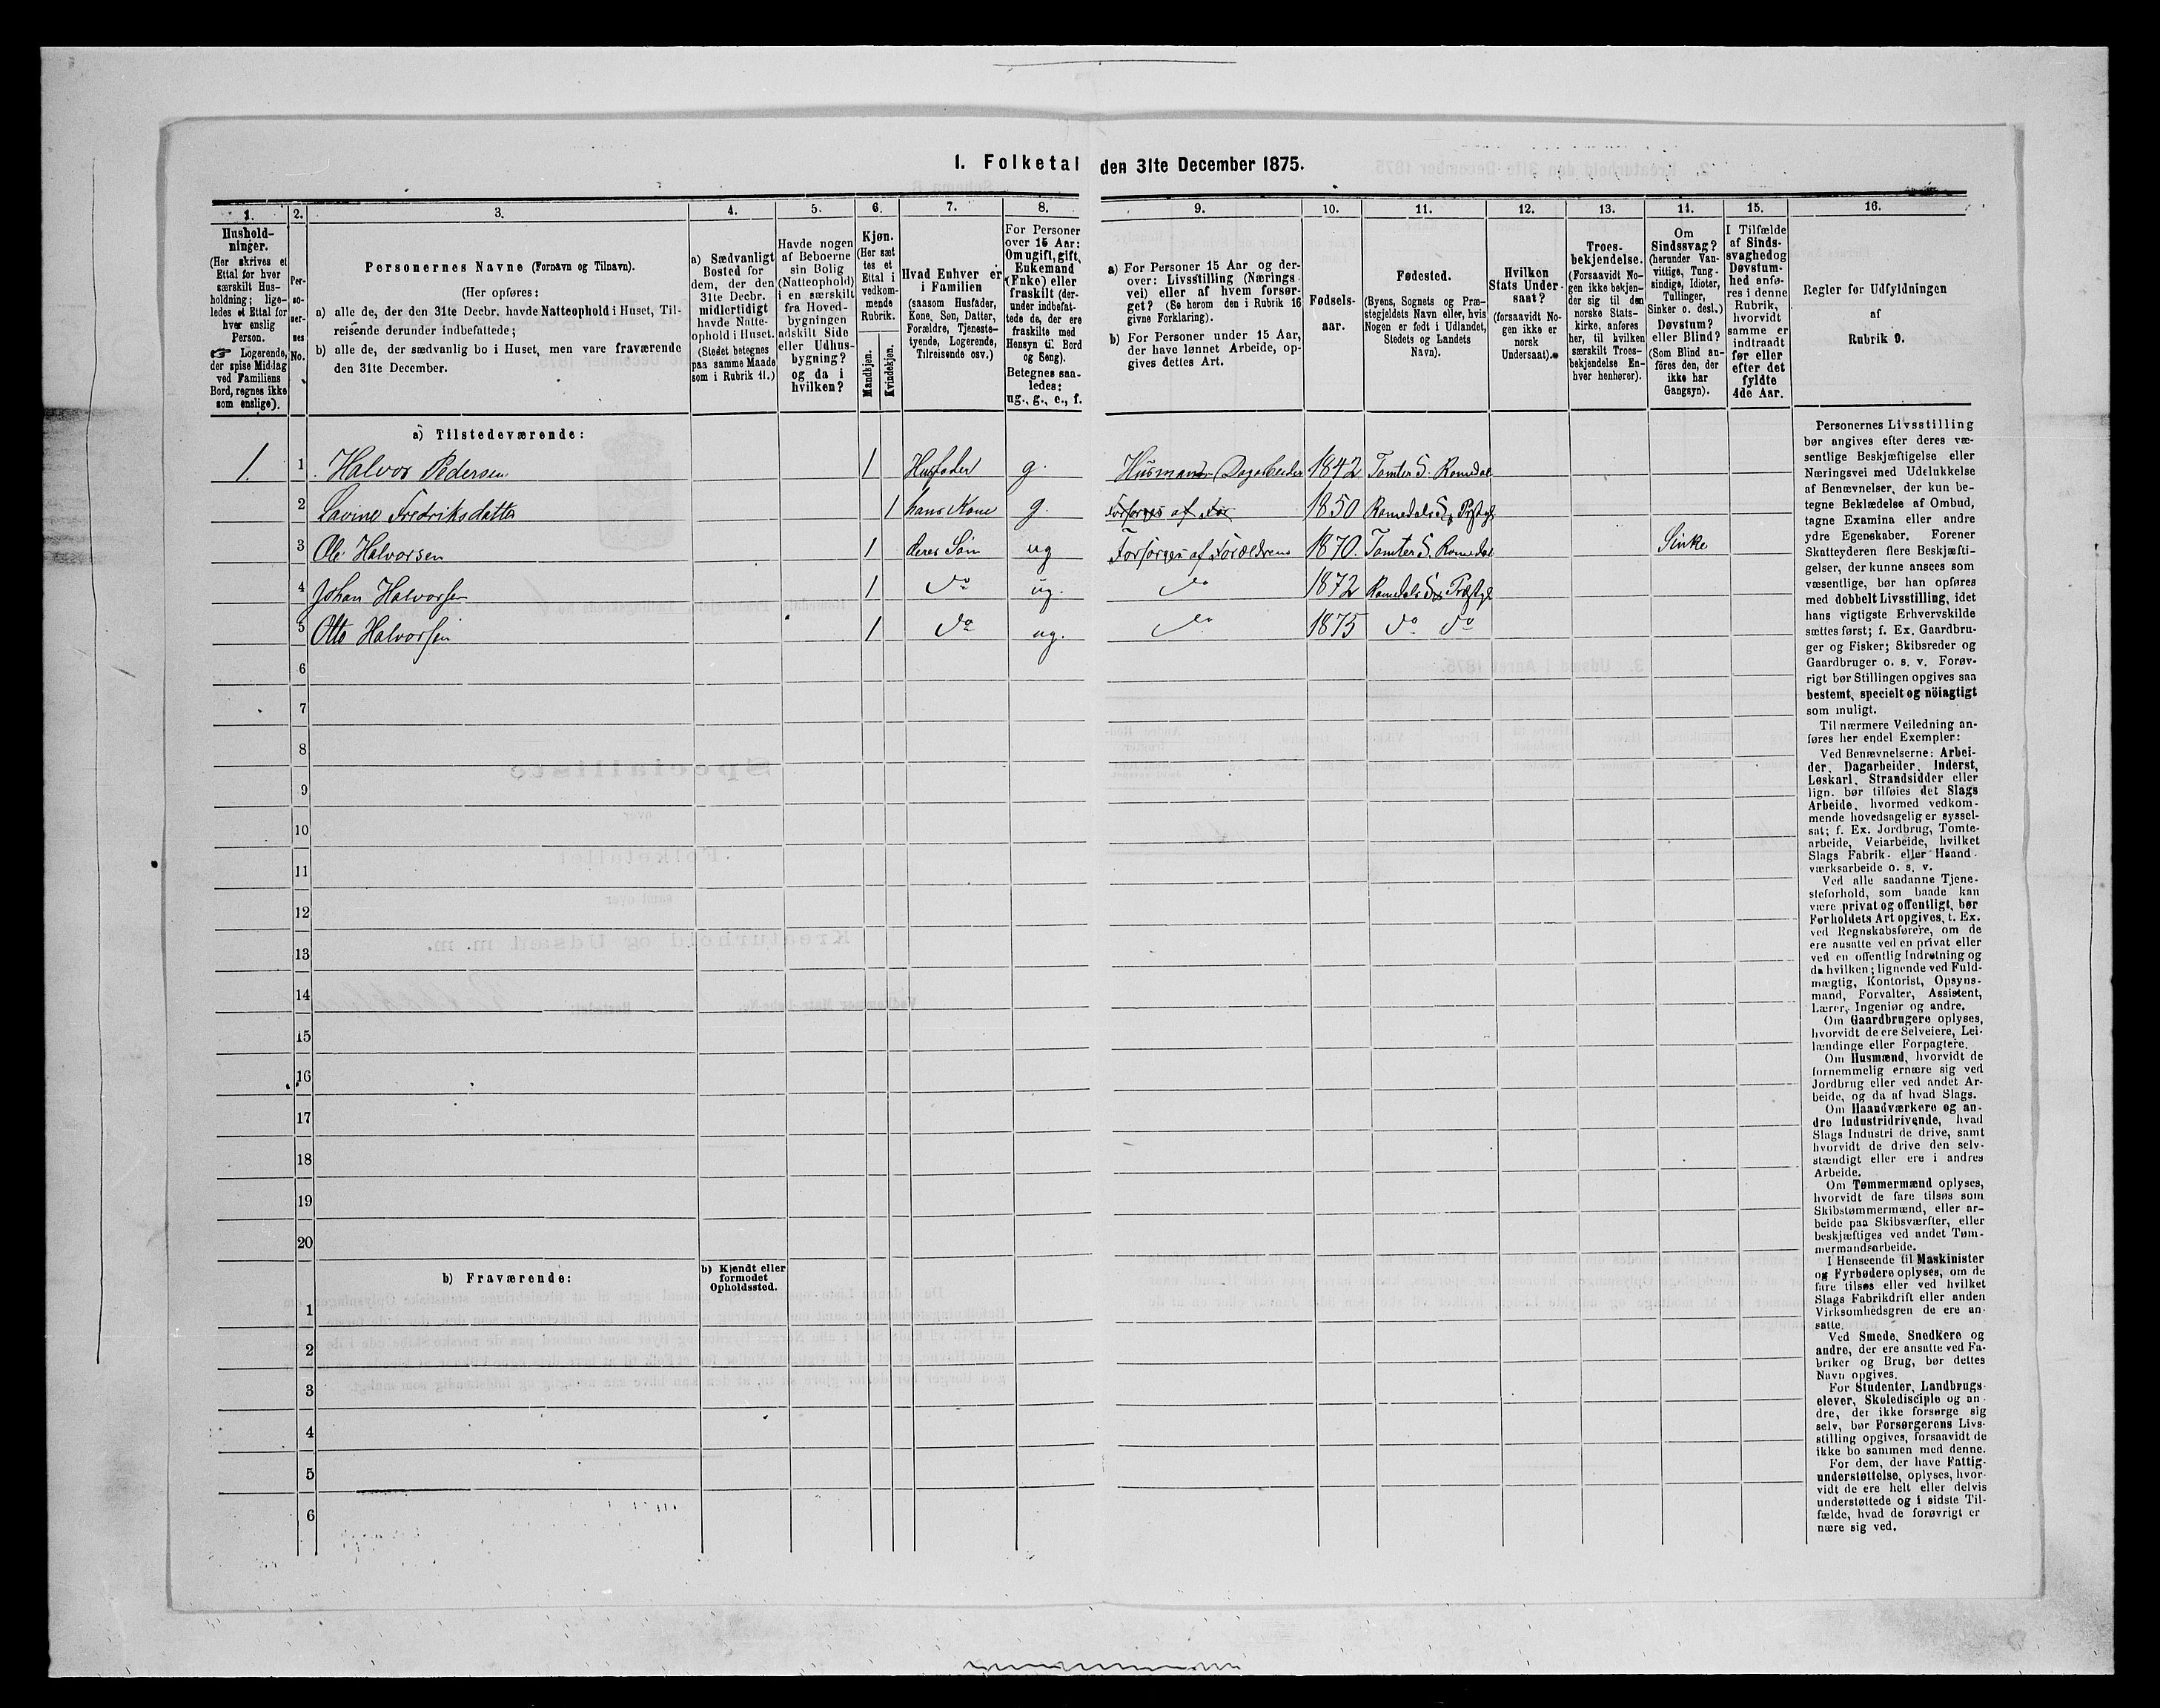 I. Folketal den 31te December 1875.
1. 2. 3. 4. 5. 6. 7. 8. 9. 10. 11. 12. 13. 14. 15. 16.
Hushold-
ninger.
(Her skrives et
Ettal for hver
særskilt Hus-
holdning; lige-
ledes et Ettal for
hver enslig
Person.
☞ Logerende,
der spise Middag
ved Familiens
Bord, regnes ikke
som enslige).
Per-
so-
ner-
nes
No.
Personernes Navne (Fornavn og Tilnavn).
(Her opføres:
a) alle de, der den 31te Decbr. havde Natteophold i Huset, Til-
reisende derunder indbefattede;
b) alle de, der sædvanlig bo i Huset, men vare fraværende
den 31te December.
a) Sædvanligt
Bosted for
dem, der den
31te Decbr.
midlertidigt
havde Natte-
ophold i Huset.
(Stedet betegnes
paa samme Maade
som i Rubrik 11.)
Havde nogen
af Beboerne
sin Bolig
(Natteophold)
i en særskilt
fra Hoved-
bygningen
adskilt Side
eller Udhus-
bygning?
og da i
hvilken?
Kjøn.
(Her sæt
tes et
Ettal i
vedkom-
mende
Rubrik.
Mandkjøn.
Kvindekjøn.
Hvad Enhver er
i Familien
(saasom Husfader,
Kone, Søn, Datter,
Forældre, Tjeneste-
tyende, Logerende,
Tilreisende osv.)
For Personer
over 15 Aar:
Om ugift, gift,
Enkemand
(Enke) eller
fraskilt (der-
under indbefat-
tede de, der ere
fraskilte med
Hensyn til Bord
og Seng).
Betegnes saa-
ledes:
ug., g., e., f.
a) For Personer 15 Aar og der-
over: Livsstilling (Nærings-
vei) eller af hvem forsør-
get? (Se herom den i Rubrik 16
givne Forklaring).
b) For Personer under 15 Aar,
der have lønnet Arbeide, op-
gives dettes Art.
Fødsels-
aar.
Fødested.
(Byens, Sognets og Præ-
stegjeldets Navn eller, hvis
Nogen er født i Udlandet,
Stedets og Landets
Navn).
Hvilken
Stats Under-
saat?
(forsaavidt No-
gen ikke er
norsk
Undersaat).
Troes-
bekjendelse.
(Forsaavidt No-
gen ikke bekjen-
der sig til den
norske Stats-
kirke, anføres
her, til hvilken
særskilt Troes-
bekjendelse En-
hver henhører).
Om
Sindssvag?
(herunder Van-
vittige, Tung-
sindige, Idioter,
Tullinger,
Sinker o. desl.)
Døvstum?
eller Blind?
(Som Blind an-
føres den, der
ikke har
Gangsyn).
I Tilfælde
af Sinds-
svaghed og
Døvstum-
hed anfø-
res i denne
Rubrik,
hvorvidt
samme er
indtraadt
før eller
efter det
fyldte
4de Aar.
Regler for Udfyldningen
af
Rubrik 9.
a) Tilstedeværende:
1. 1 Halvor Pedersen 1 Husfader g. Husmand Dagarbeider 1842 Tomter S. Romedal
2 Lavine Fredriksdatter 1 hans Kone g. Forsørges af For 1850 Romedals S. Præstgl
3 Ole Halvorsen 1 deres Søn ug Forsørges af Forældrene 1870. Tomter S. Romedal Sinke
4 Johan Halvorsen 1 do ug. do 1872 Romedals S. Præstgl
5 Otto Halvorsen 1 do ug. do 1875 do do
6
7
8
9
10
11
12
13
14
15
16
17
18
19
20
b) Fraværende:
b) Kjendt eller
formodet
Opholdssted.
1
2
3
4
5
6
Personernes Livsstilling
bør angives efter deres væ-
sentlige Beskjæftigelse eller
Næringsvei med Udelukkelse
af Benævnelser, der kun be-
tegne Beklædelse af Ombud,
tagne Examina eller andre
ydre Egenskaber. Forener
Skatteyderen flere Beskjæfti-
gelser, der kunne ansees som
væsentlige, bør han opføres
med dobbelt Livsstilling, idet
hans vigtigste Erhvervskilde
sættes først; f. Ex. Gaardbru-
ger og Fisker; Skibsreder og
Gaardbruger o. s. v. Forøv-
rigt bør Stillingen opgives saa
bestemt, specielt og nöiagtigt
som muligt.
Til nærmere Veiledning an-
føres her endel Exempler:
Ved Benævnelserne: Arbei-
der, Dagarbeider, Inderst,
Løskarl, Strandsidder eller
lign. bør tilføies det Slags
Arbeide, hvormed vedkom-
mende hovedsagelig er syssel-
sat; f. Ex. Jordbrug, Tomte-
arbeide, Veiarbeide, hvilket
Slags Fabrik- eller Haand-
værksarbeide o. s. v.
Ved alle saadanne Tjene-
steforhold, som baade kan
være privat og offentligt, bør
Forholdets Art opgives, t. Ex.
ved Regnskabsførere, om de
ere ansatte ved en privat eller
ved en offentlig Indretning og
da hvilken; lignende ved Fuld-
mægtig, Kontorist, Opsyns-
mand, Forvalter, Assistent,
Lærer, Ingeniør og andre.
Om Gaardbrugere oplyses,
hvorvidt de ere Selveiere, Lei-
lændinge eller Forpagtere.
Om Husmænd, hvorvidt de
fornemmelig ernære sig ved
Jordbrug eller ved andet Ar-
beide, og da af hvad Slags.
Om Haandværkere og an-
dre Industridrivende, hvad
Slags Industri de drive, samt
hvorvidt de drive den selv-
stændigt eller ere i andres
Arbeide.
Om Tømmermænd oplyses,
hvorvidt de fare tilsøs som
Skibstømmermænd, eller ar-
beide paa Skibsværfter, eller
beskjæftiges ved andet Tøm-
mermandsarbeide.
I Henseende til Maskinister
og Fyrbødere oplyses, om de
fare tilsøs eller ved hvilket
Slags Fabrikdrift eller anden
Virksomhedsgren de ere an-
satte.
Ved Smede, Snedkere og
andre, der ere ansatte ved Fa-
briker og Brug, bør dettes
Navn opgives.
For Studenter, Landbrugs-
elever, Skoledisciple og an-
dre, der ikke forsørge sig
selv, bør Forsørgerens Livs-
stilling opgives, forsaavidt de
ikke bo sammen med denne.
For dem, der have Fattig-
understøttelse, oplyses, hvor-
vidt de ere helt eller delvis
understøttede og i sidste Til-
fælde, hvad de forøvrigt er
nære sig ved.